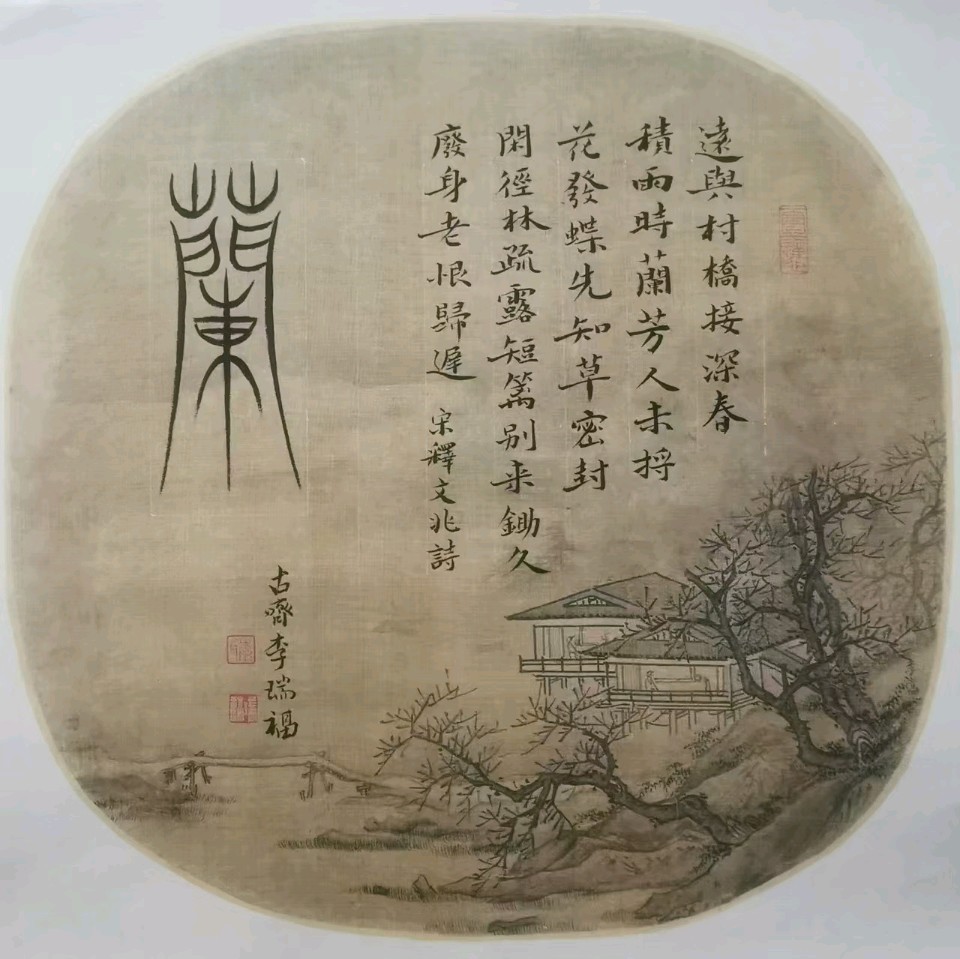 遠與村橋接深春
積雨時蘭芳人未捋
花發蝶先知草密封
閑徑林疏露短篱别来鋤久
廢身老恨歸遲 宋釋文兆詩
蘭
古齋李瑞福